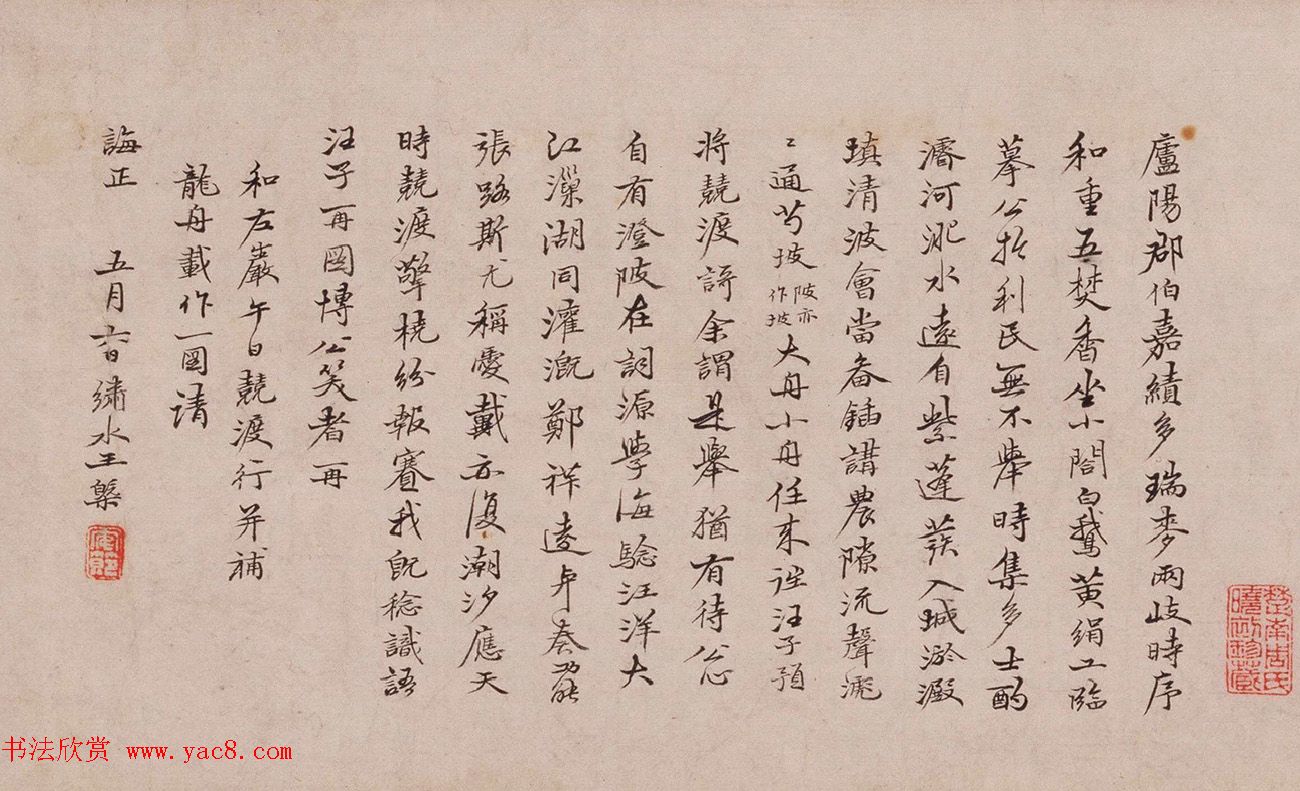 廬陽郡伯嘉績多瑞麥兩岐時序
和重五焚香坐小閤白鵝黃絹工臨
摹公抵利民無不舉時集多士酌
濬河淝水遠自紫蓬發入城淤澱
填清波會當畚鍤講農隙流聲㶁
㶁通芍坡陂亦作坡大舟小舟任來往汪子預
將競渡謌余謂是舉猶有待公
自有澄陂在詞源學海驗汪洋大
江漅湖同灌溉鄭祥遠奏罷
張路斯尤稱愛戴亦復潮汐應天
時競渡擎橈紛報賽我既稔識語
汪子再圖博公笑者再
和左巖午日競渡行并補
龍舟載作一圖請
誨正 五月六日繡水王槩
楚南周氏
珍藏
书法欣赏 www.yac8.com